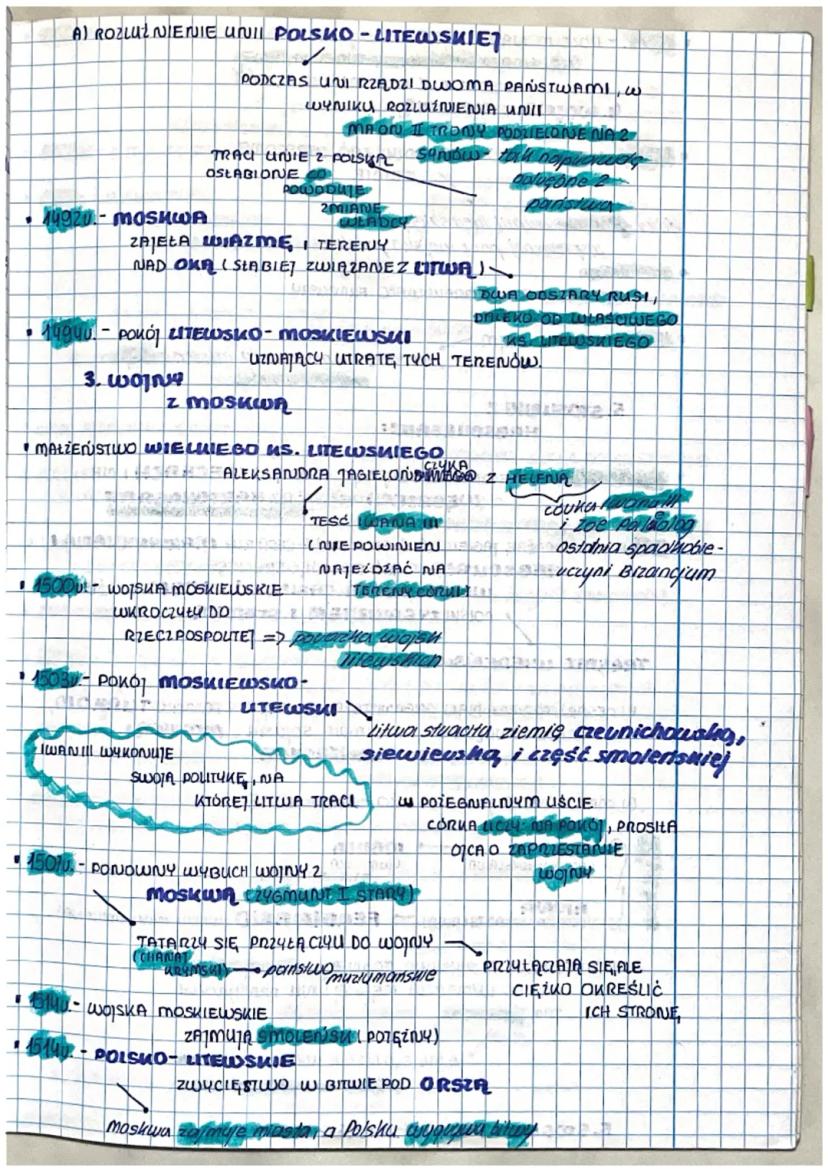 A) ROZLUŹNIENIE UNII POLSKO-LITEWSKIEJ
PODCZAS UNI RZĄDZI DWOMA PAŃSTWAMI, W
WYNIKU ROZLUŹNIENIA UNII
MA ON II TRONY PODZIELONE NA 2
SYNÓW - tak naprawdę
połączone 2
państwa
TRACI UNIE Z POLSKĄ
OSŁABIONE CO
POWODUJE
ZMIANĘ
WŁADCY
• 1492r. - MOSKWA
ZAJĘŁA WIAZMĘ I TERENY
NAD OKĄ (SŁABIEJ ZWIĄZANE Z LITWĄ)
DWA OBSZARY RUSI,
DALEKO OD WŁAŚCIWEGO
KS. LITEWSKIEGO
• 1494r. - POKÓJ LITEWSKO-MOSKIEWSKI
UZNAJĄCY UTRATĘ TYCH TERENÓW.
3. WOJNY
Z MOSKWĄ
• MAŁŻEŃSTWO WIELKIEGO KS. LITEWSKIEGO
ALEKSANDRA JAGIELOŃCZYKA Z HELENĄ
TEŚĆ IWANA III
I NIE POWINIEN
NAJEŻDŻAĆ NA
TERENY CÓRKI
córka Iwana III
i Zoe Paleolog
ostatnia spadkobie-
rczyni Bizancjum
• 1500r. - WOJSKA MOSKIEWSKIE
WKROCZYŁY DO
RZECZPOSPOLITEJ => porażka wojsk
litewskich
• 1503r. - POKÓJ MOSKIEWSKO-
LITEWSKI
Litwa straciła ziemię czernichowską,
siewierską, i część smoleńskiej
IWAN III WYKONUJE
SWOJĄ POLITYKĘ, NA
KTÓREJ LITWA TRACI
W POŻEGNALNYM LIŚCIE
CÓRKA LICZY NA POKÓJ, PROSIŁA
OJCA O ZAPRZESTANIE
WOJNY
• 1507r. - PONOWNY WYBUCH WOJNY Z
MOSKWĄ (ZYGMUNT I STARY)
TATARZY SIĘ PRZYŁĄCZYLI DO WOJNY
(CHANAT
KRYMSKI) - państwo muzułmańskie
PRZYŁĄCZAJĄ SIĘ, ALE
CIĘŻKO OKREŚLIĆ
ICH STRONĘ
• 1514r. - WOJSKA MOSKIEWSKIE
ZAJMUJĄ SMOLEŃSK (POTĘŻNY)
• 1514r. - POLSKO-LITEWSKIE
ZWYCIĘSTWO W BITWIE POD ORSZĄ
Moskwa zajmuje miasta, a Polska wygrywa bitwy